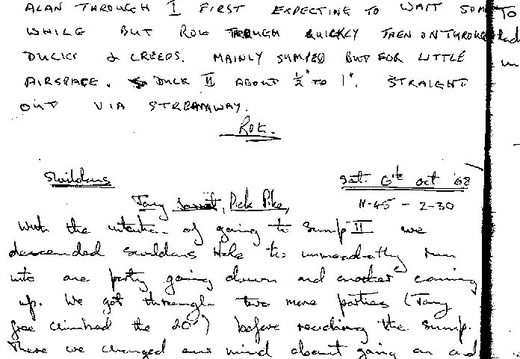 ALAN THROUGH I FIRST EXPECTING TO WAIT SOM TO
WHILE BUT ROK THROUGH QUICKLY THEN ON THROUGH
DUCKS & CREEPS. MAINLY SUMPED BUT FOR LITTLE
AIRSPACE. DUCK II ABOUT ½" TO 1". STRAIGHT
OUT VIA STREAMWAY.
ROK.
Swildons Sat. 6th Oct '68
Tony Jarratt, Dick Pike, 11-45 – 2-30
With the intention of going to Sump II we
descended Swildons Hole to immediately run
into one party going down and another coming
up. We got through two more parties (Tony
free climbed the 20') before reaching the sump.
There we changed our mind about going on and